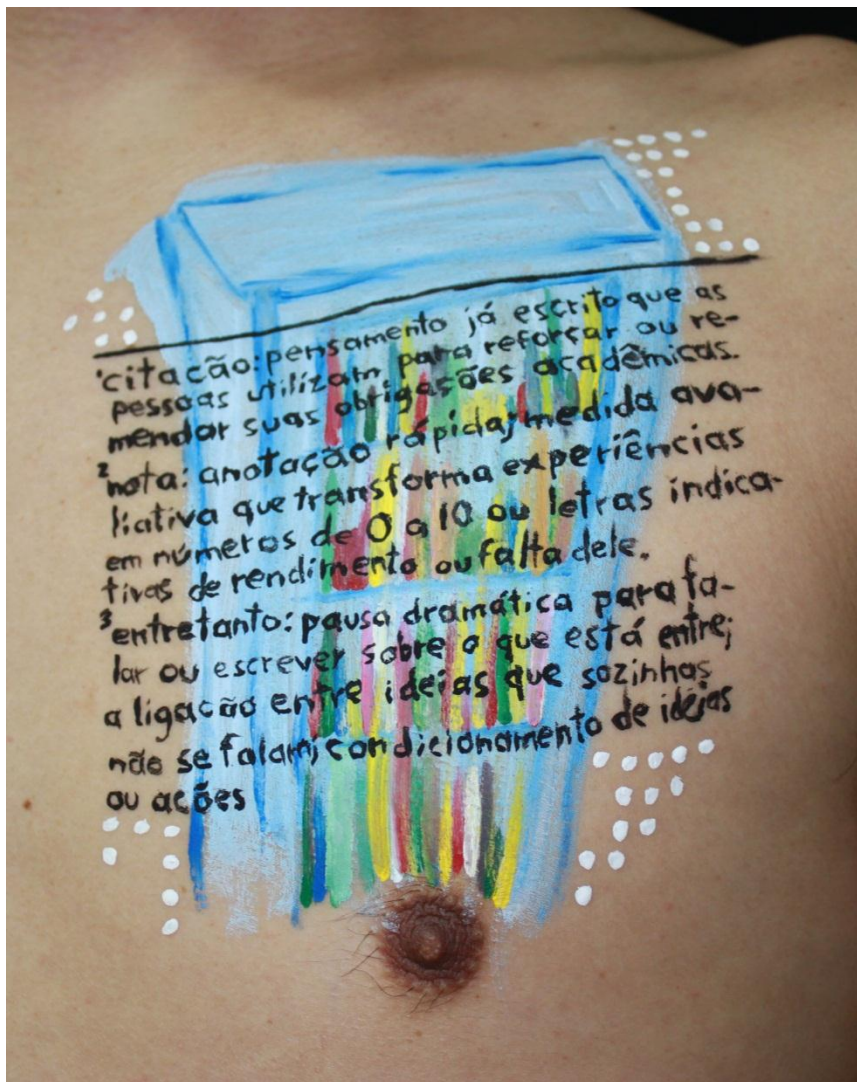 ¹citação: pensamento já escrito que as
pessoas utilizam para reforçar ou re-
mendar suas obrigações acadêmicas.
²nota: anotação rápida; medida ava-
liativa que transforma experiências
em números de 0 a 10 ou letras indica-
tivas de rendimento ou falta dele.
³entretanto: pausa dramática para fa-
lar ou escrever sobre o que está entre;
a ligação entre ideias que sozinhas
não se falam; condicionamento de ideias
ou ações